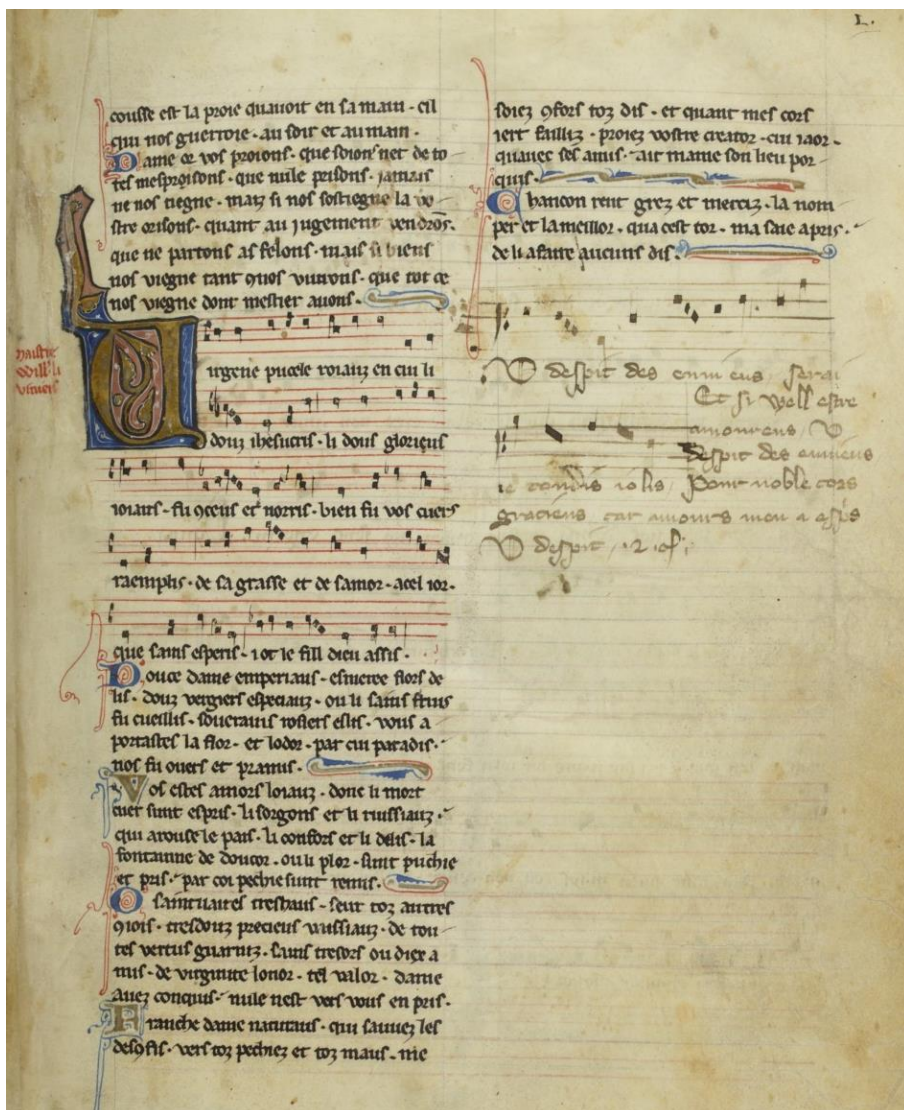 L.
cousse est la proie quavoit en sa main · cil
qui nos guerroie · au soir et au main ·
Dame or vos proions · que soions net de to
tes mesproisons · que nule prisons · jamais
ne nos tiegne · maiz si nos sostiegne la vo
stre orisons · quant au jugement vendrõs ·
que ne partons as felons · mais si biens
nos viegne tant 9nos vivrons · que tot ce
nos viegne dont mestier avons ·
maistre
will' li
viniers
Virgene pucele roiauz en cui li
douz ihesucris · li dous glorieus
roiaus · fu 9ceus et norris · bien fu vos cuers
raemplis · de sa grasse et de samor · a cel ior ·
que sains esperis · i ot le fill dieu assis ·
Douce dame emperiaus · esmeree flors de
lis · douz vergiers especiauz · ou li sains fruis
fu cueillis · souerains rosiers eslis · vous a
portastes la flor · et lodor · par cui paradis ·
nos fu ouers et pramis ·
Vos estes amors loiauz · donc li mort
cuer sunt espris · li sorgons et li ruissiauz ·
qui arouse le pais · li confors et li delis · la
fontainne de doucor · ou li plor · sunt puchie
et pris · par coi pechie sunt remis ·
O saintuaires treshaus · seur toz autres
9iois · tresdouz precieus vaissiauz · de tou
tes vertus guarniz · sains tresors ou diex a
mis · de virginite lonor · tel valor · dame
avez conquis · nule nest vers vous en pris ·
Franche dame naturaus · qui sauvez les
des9fis · vers toz pechiez et toz maus · me
soiez 9fors toz dis · et quant mes cors
iert failliz · proiez vostre creator · cui iaor ·
quauec ses amis · ait mame son lieu por
quis ·
Chancon rent grez et merciz · la nom
per et la meillor · qua cest tor · ma saie apris ·
de li a faire aucuns dis ·
V despit des envieus serai
Et si well estre
amoureus / V
despit des envieus
ie toudis iolis / Pour noble cors
gracieus car amours men a espris
V despit ·